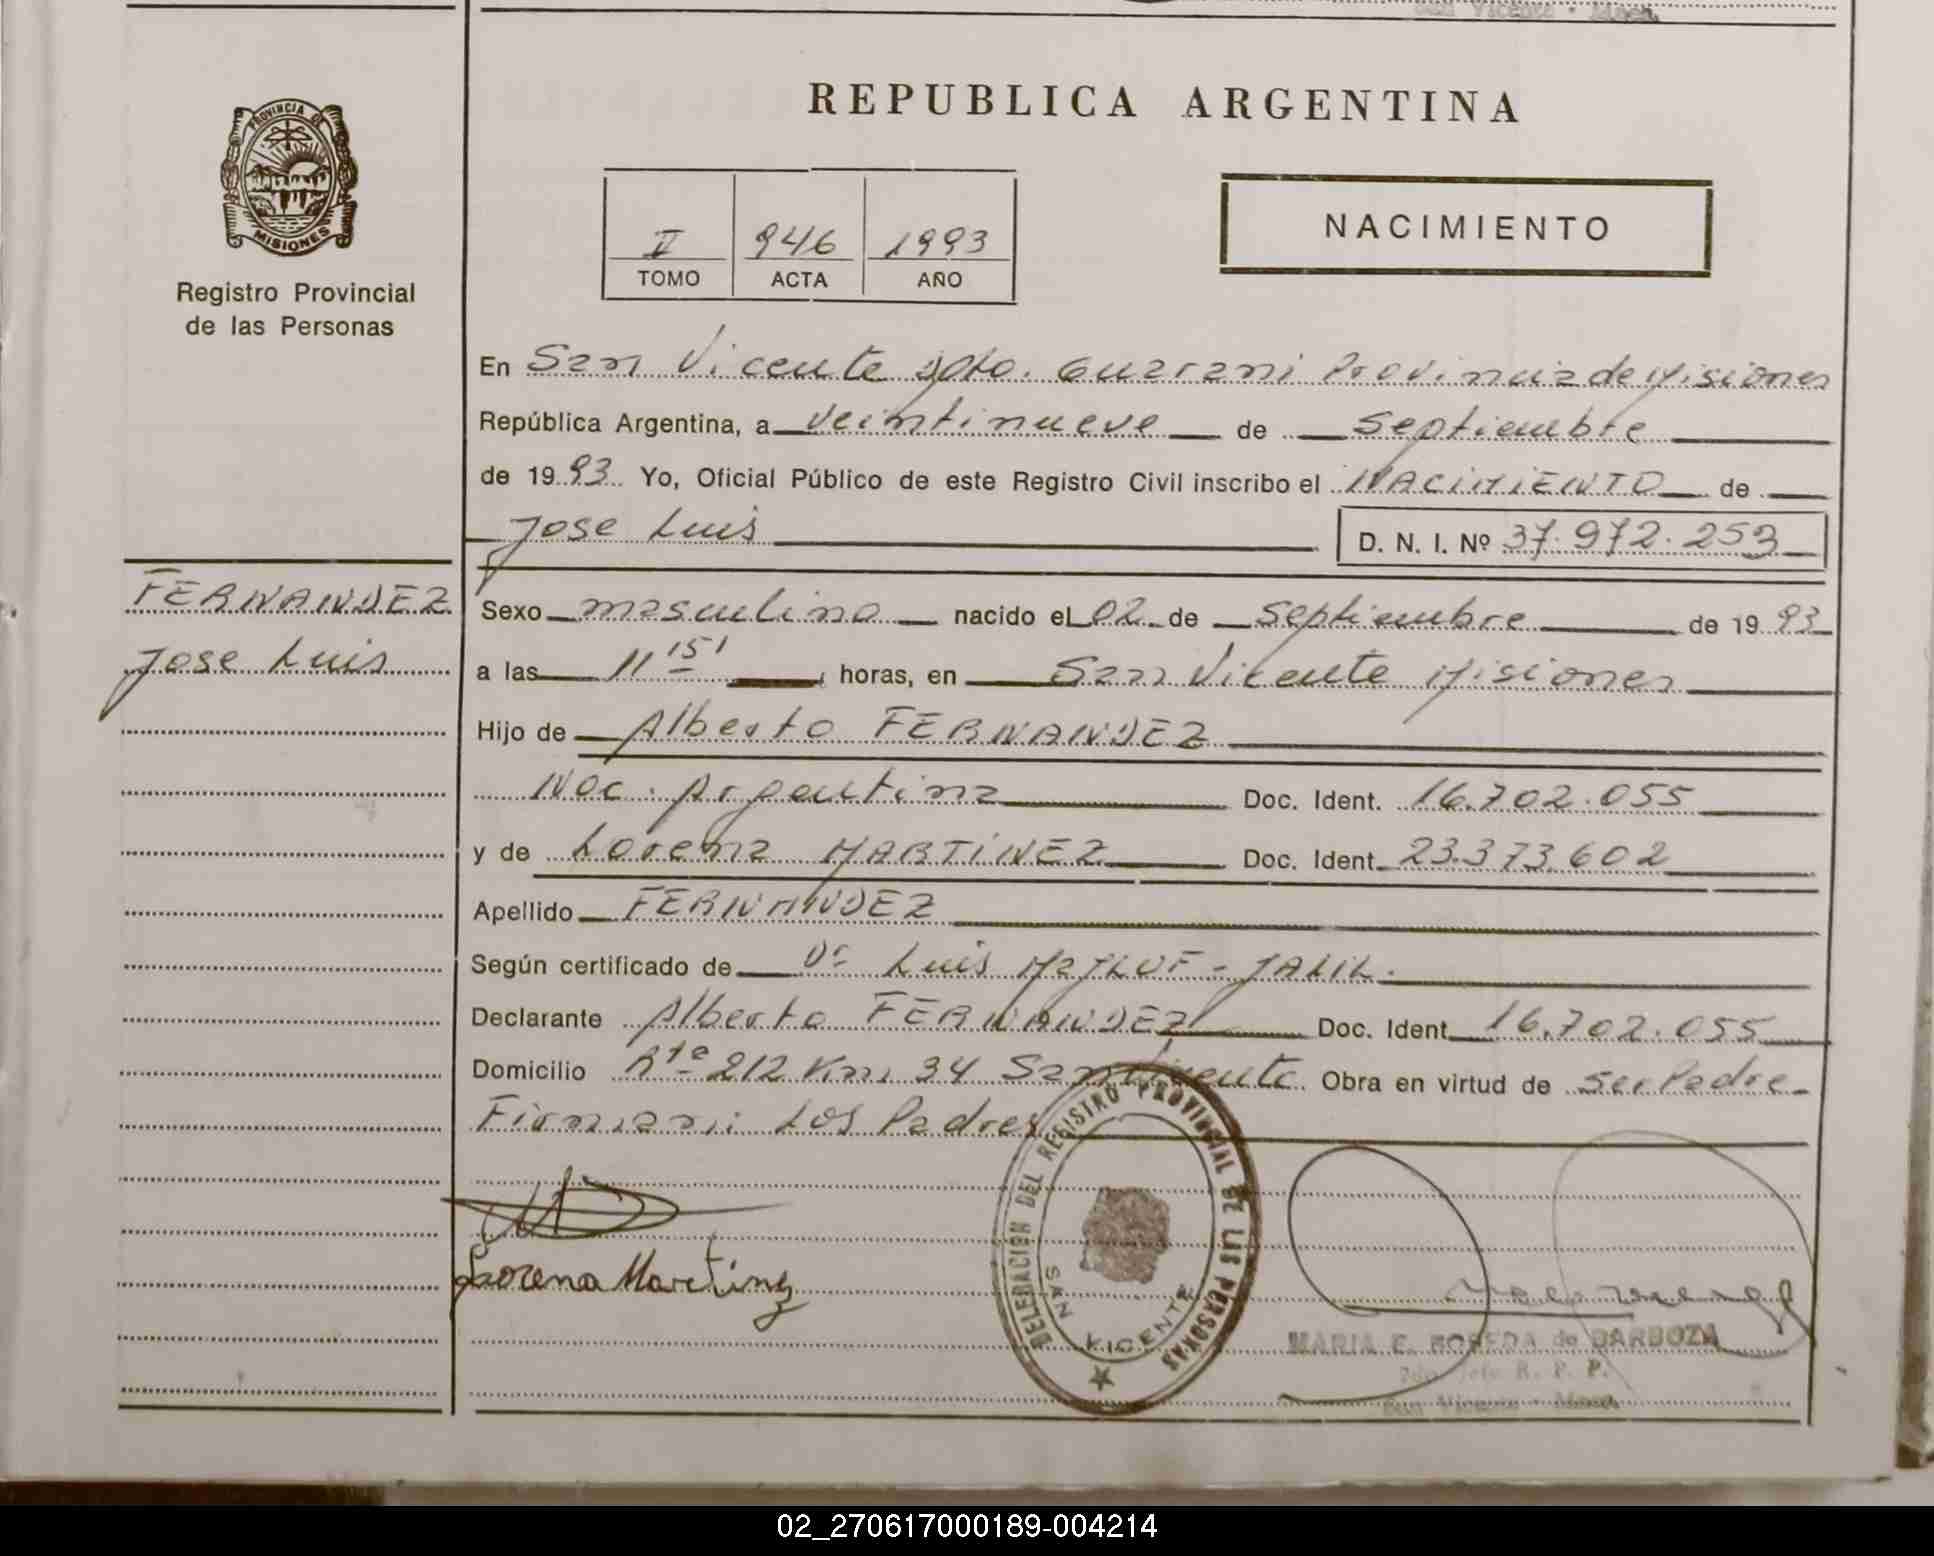 San Vicente - Mnes.
PROVINCIA DE
MISIONES
Registro Provincial
de las Personas
REPUBLICA ARGENTINA
II 946 1993
TOMO ACTA AÑO
NACIMIENTO
En San Vicente Dpto. Guarani Provincia de Misiones
República Argentina, a veintinueve de septiembre
de 1993 Yo, Oficial Público de este Registro Civil inscribo el NACIMIENTO de
Jose Luis D. N. I. Nº 37.972.253
FERNANDEZ
Jose Luis
Sexo masculino nacido el 02 de septiembre de 1993
a las 11 15' horas, en San Vicente Misiones
Hijo de Alberto FERNANDEZ
Nac. Argentina Doc. Ident. 16.702.055
y de Lorena MARTINEZ Doc. Ident. 23.373.602
Apellido FERNANDEZ
Según certificado de Dr Luis - JALIL.
Declarante Alberto FERNANDEZ Doc. Ident. 16.702.055
Domicilio Rta 212 Km. 34 San Vicente. Obra en virtud de ser Padre
Firman: Los Padres
Lorena Martinez
DELEGACION DEL REGISTRO PROVINCIAL DE LAS PERSONAS
SAN VICENTE
MARIA E. de BARBOZA
2do. Jefe R. P. P.
San Vicente - Mnes.
02_270617000189-004214